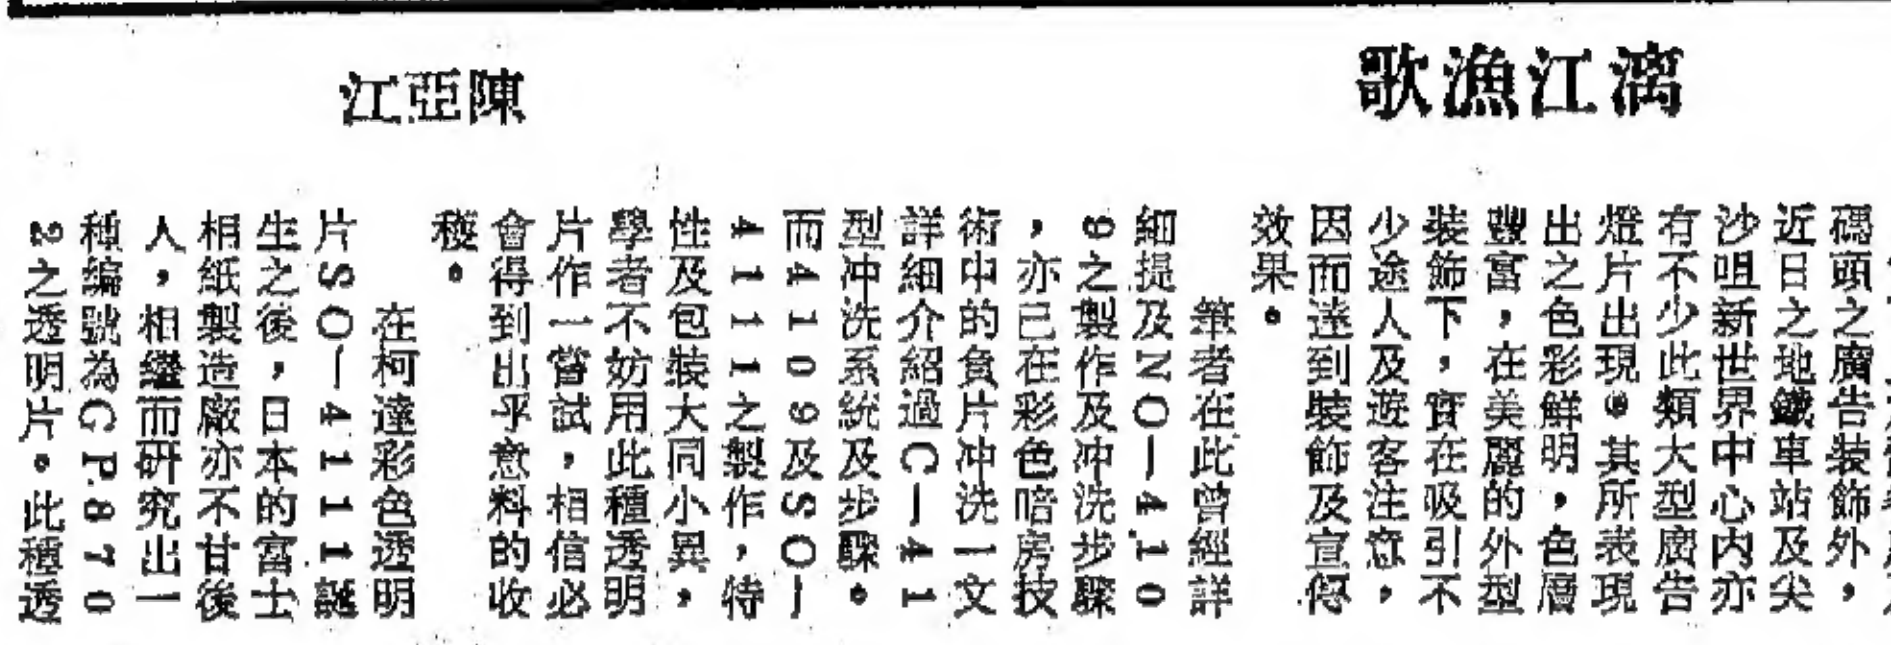 漓江漁歌
陳亞江
碼頭之廣告裝飾外，
近日之地鐵車站及尖
沙咀新世界中心內亦
有不少此類大型廣告
燈片出現。其所表現
出之色彩鮮明，色層
豐富，在美麗的外型
裝飾下，實在吸引不
少途人及遊客注意，
因而達到裝飾及宣傳
效果。
筆者在此曾經詳
細提及NO—410
9之製作及冲洗步驟
，亦已在彩色暗房技
術中的負片冲洗一文
詳細介紹過C—41
型冲洗系統及步驟。
而4109及SO—
4111之製作，特
性及包裝大同小異，
學者不妨用此種透明
片作一嘗試，相信必
會得到出乎意料的收
穫。
在柯達彩色透明
片SO—4111誕
生之後，日本的富士
相紙製造廠亦不甘後
人，相繼而研究出一
種編號為GP870
2之透明片。此種透